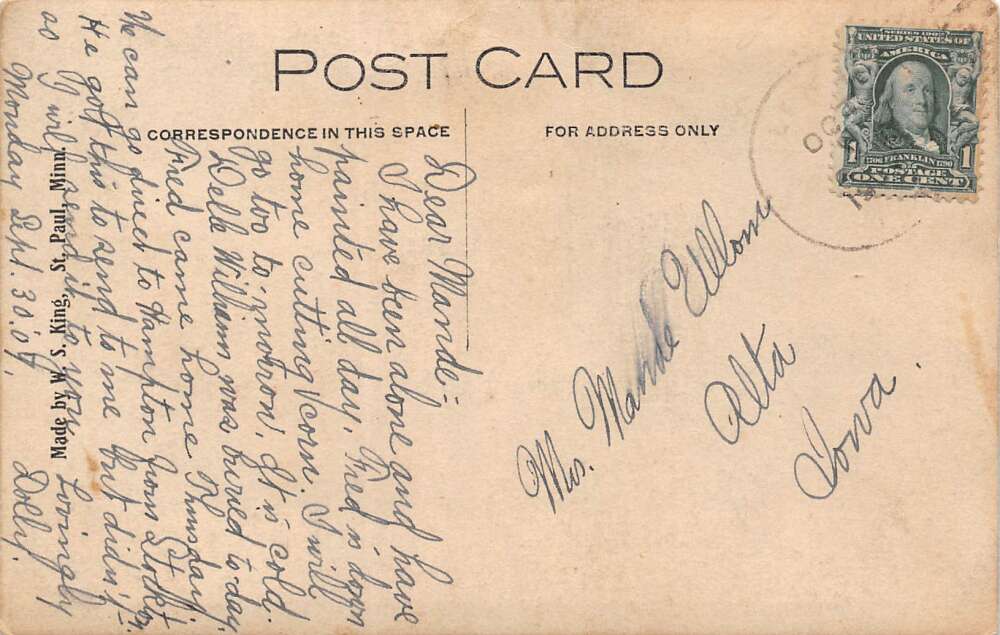 POST CARD
CORRESPONDENCE IN THIS SPACE
FOR ADDRESS ONLY
SERIES 1902
UNITED STATES OF
AMERICA
1706 FRANKLIN 1790
POSTAGE
1 ONE CENT 1
OC
Dear Maude:-
I have been alone and have
painted all day, Fred is down
home cutting corn. I will
go too to-morrow, It is cold.
Della William was buried to-day
Fred came home Thursday.
We can go direct to Hampton from Stockton.
He got this to send to me but didn't
so I will send it to you. Lovingly
Monday Sept. 30.'07. Dolly.
Made by W. S. King, St. Paul, Minn.
Mrs. Maude Ullom
Alta
Iowa.